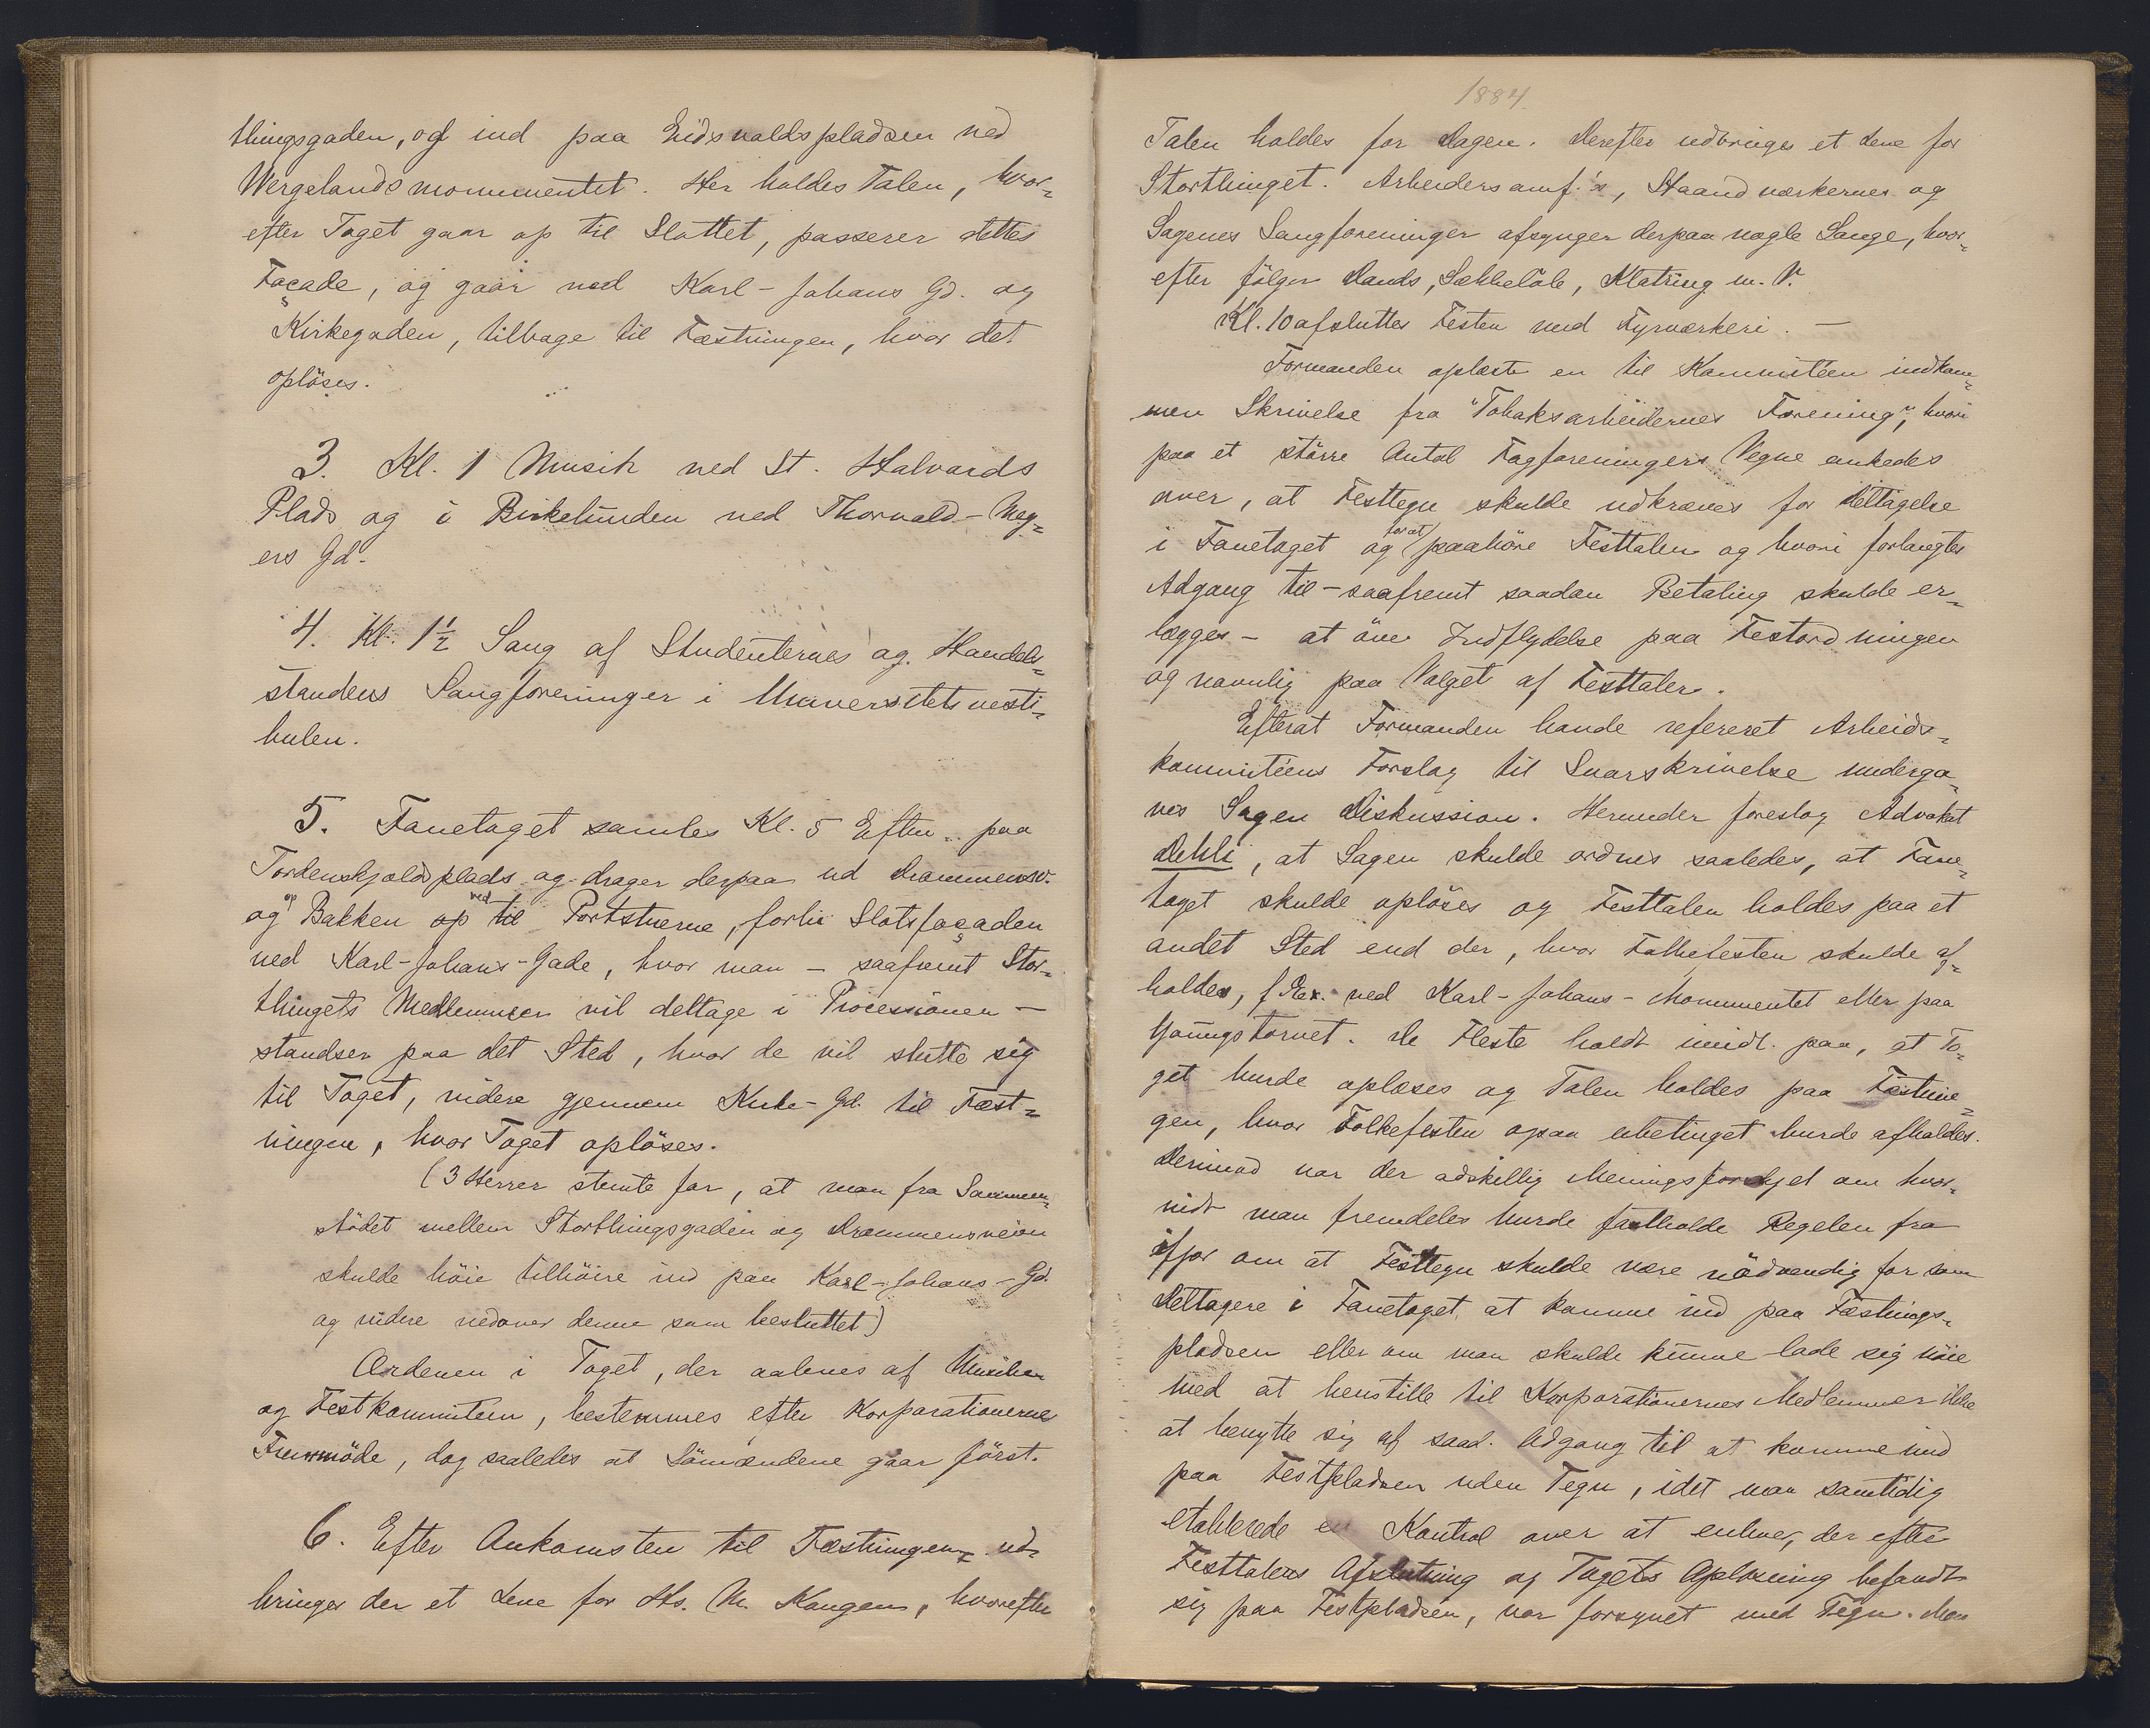 thingsgaden, og ind paa Eidsvoldspladsen ved
Wergelandsmonumentet. Her holdes Talen, hvor-
efter Toget gaar op til Slottet, passerer dettes
Façade, og gaar ned Karl-Johans Gd. og
Kirkegaden, tilbage til Fæstningen, hvor det
opløses.
3. Kl. 1 Musik ved St. Halvards
Plads og i Birkelunden ved Thorvald-Mey-
ers Gd.
4. Kl. 1½ Sang af Studenternes og Handels-
standens Sangforeninger i Universitetsvesti-
bulen.
5. Fanetoget samles Kl. 5 Efterm. paa
Tordenskjoldsplads og drager derpaa ud Drammensv.
og op Bakken op ved til Portstuerne, forbi Slotsfaçaden
ned Karl-Johans-Gade, hvor man – saafremt Stor-
thingets Medlemmer vil deltage i Processionen –
standser paa det Sted, hvor de vil slutte sig
til Toget, videre gjennem Kirke-Gd. til Fæst-
ningen, hvor Toget opløses.
(3 Herrer stemte for, at man fra Sammen-
stødet mellem Storthingsgaden og Drammensveien
skulde bøie tilhøire ind paa Karl-Johans-Gd.
og videre nedover denne som besluttet)
Ordenen i Toget, der aabnes af Musiken
og Festkomiteen, bestemmes efter Korporationernes
Fremmøde, dog saaledes at Sømændene gaar först.
6. Efter Ankomsten til Fæstningen ud-
bringes der et Leve for Hs. M. Kongen, hvorefter
1884.
Talen holdes for Dagen. Derefter udbringes et Leve for
Storthinget. Arbeidersamf.'s, Haandværkernes og
Sagenes Sangforeninger afsynger derpaa nogle Sange, hvor-
efter følger Dands, Sækkeløb, Klatring m. V.
Kl. 10 afsluttes Festen med Fyrværkeri. –
Formanden oplæste en til Kommitéen indkom-
men Skrivelse fra "Tobaksarbeidernes Forening", hvori
paa et större Antal Fagforeningers Vegne ankedes
over, at Festtegn skulde udkræves for Deltagelse
i Fanetoget og for at paahöre Festtalen og hvori forlangtes
Adgang til – saafremt saadan Betaling skulde er-
lægges – at öve Indflydelse paa Festordningen
og navnlig paa Valget af Festtaler.
Efterat Formanden havde refereret Arbeids-
kommitéens Forslag til Svarskrivelse underga-
ves Sagen Diskussion. Herunder foreslog Advokat
Dehli, at Sagen skulde ordnes saaledes, at Fane-
toget skulde opløses og Festtalen holdes paa et
andet Sted end der, hvor Folkefesten skulde af-
holdes, f Ex. ved Karl-Johans-Monumentet eller paa
Youngstorvet. De Fleste holdt imidl. paa, at To-
get burde opløses og Talen holdes paa Fæstnin-
gen, hvor Folkefesten ogsaa ubetinget burde afholdes.
Derimod var der adskillig Meningsforskjel om hvor-
vidt man fremdeles burde fastholde Regelen fra
ifjor om at Festtegn skulde være nödvendig for som
Deltagere i Fanetoget at komme ind paa Fæstnings-
pladsen eller om man skulde kunne lade sig nöie
med at henstille til Korporationernes Medlemmer ikke
at benytte sig af saad. Adgang til at komme ind
paa Festpladsen uden Tegn, idet man samtidig
etablerede en Kontrol over at enhver, der efter
Festtalens Afslutning og Togets Oplösning befandt
sig paa Festpladsen, var forsynet med Tegn. Man